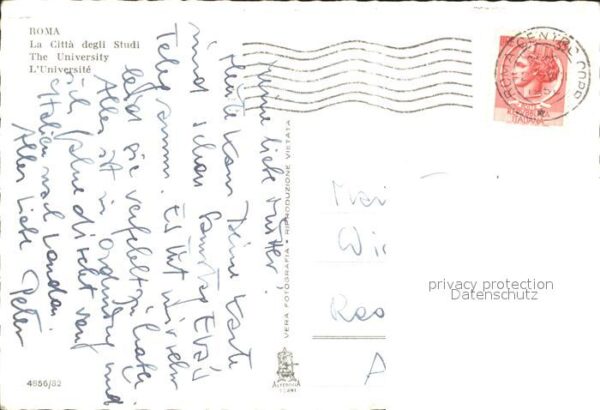 ROMA
La Città degli Studi
The University
L'Université
Meine liebe Mutter!
Heute kam Deine Karte
und schon Samstag Eva's
Telegramm. Es tut mir sehr
leid sie verfehlt zu haben.
Alles ist in Ordnung und
ich fahre direkt von
Italien nach London.
Alles Liebe Peter
4856/82
VERA FOTOGRAFIA • RIPRODUZIONE VIETATA
ROMA CENTRO CORR
REPUBBLICA
ITALIANA
Wi
privacy protection
Datenschutz